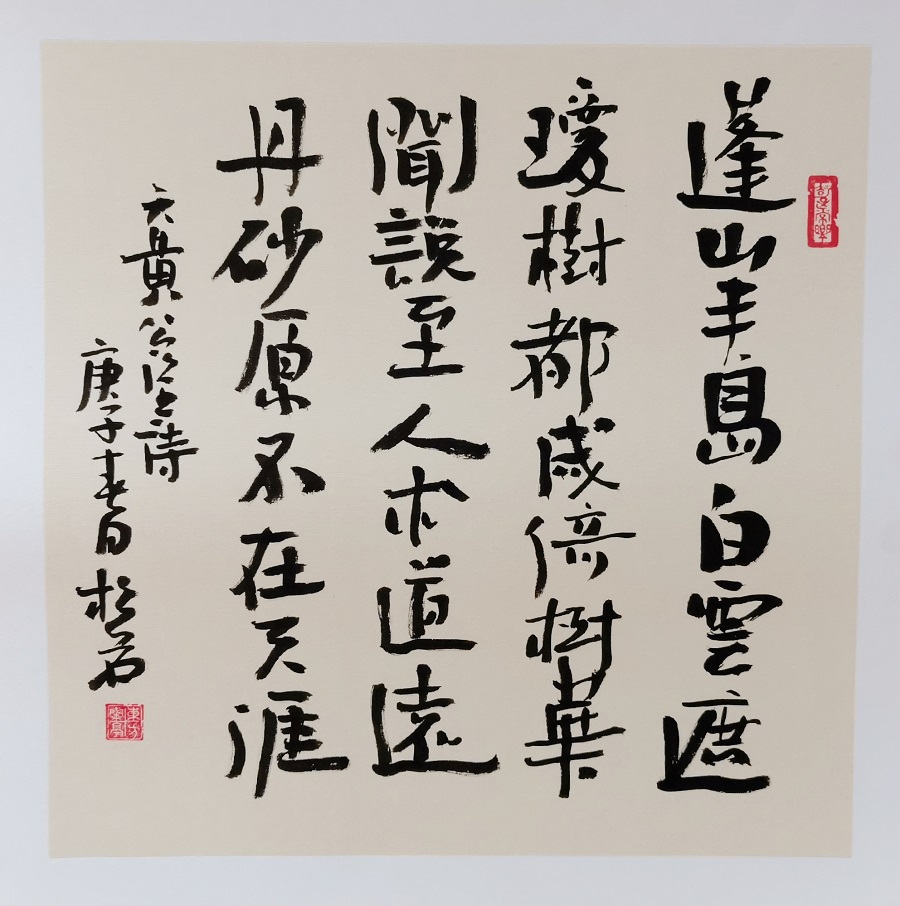 蓬山半島白雲遮
瓊樹都成綺樹華
聞說至人求道遠
丹砂原不在天涯
元黃公望詩
庚子春月松